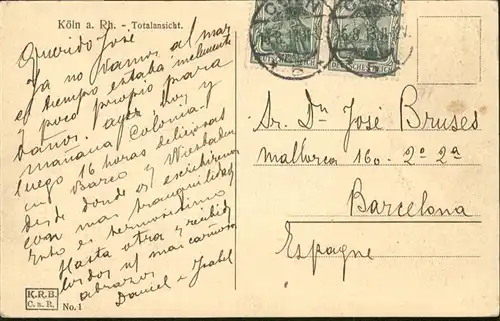 Köln a. Rh. - Totalansicht.
Querido José
Ya no vamos al mar
el tiempo estaba
y poco propio para
baños. ayer, hoy y
mañana Colonia.
luego 16 horas deliciosas
en Barco a Wiesbaden
desde donde os escribiremos
con mas tranquilidad
Esto es hermosisimo
Hasta otra y recibid
todos mas carinosos
abrazos
Daniel e Isabel
K.R.B.
C. a R.
No. 1
CÖLN
DEUTSCHES REICH
CÖLN
DEUTSCHES REICH
Sr. Dn José Bruses
Mallorca 160. 2º 2ª
Barcelona
Espagne